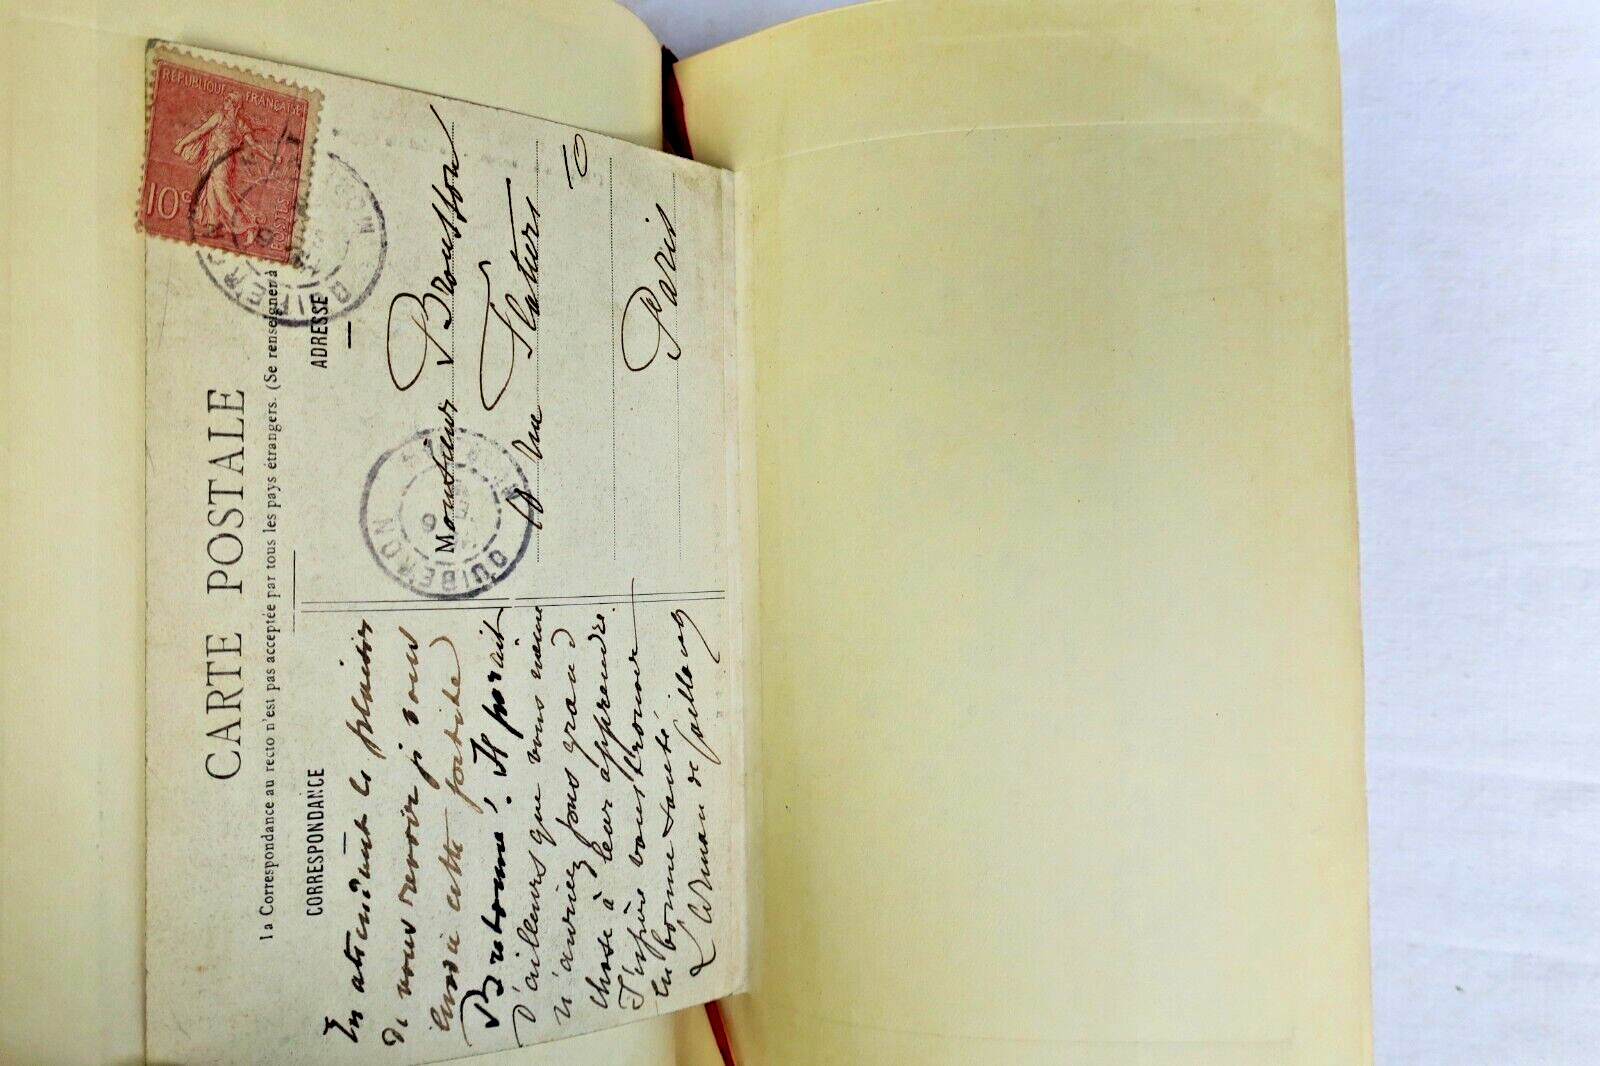 RÉPUBLIQUE FRANÇAISE
10c
POSTES
CARTE POSTALE
la Correspondance au recto n'est pas acceptée par tous les pays étrangers. (Se renseigner à
CORRESPONDANCE
En attendant le plaisir
de vous revoir je vous
envoie cette petite
Bretonne! Il parait
d'ailleurs que vous même
n'auriez pas grand
chose à leur apprendre.
J'espère vous trouver
en bonne santé
de
ADRESSE
Monsieur Brousson
rue Flatters
Paris
QUIBERON
QUIBERON